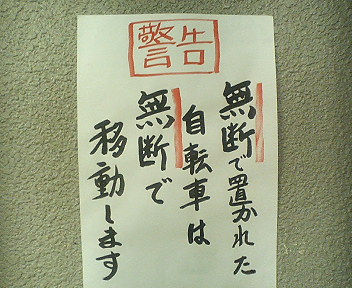 警告
無断で置かれた
自転車は
無断で
移動します